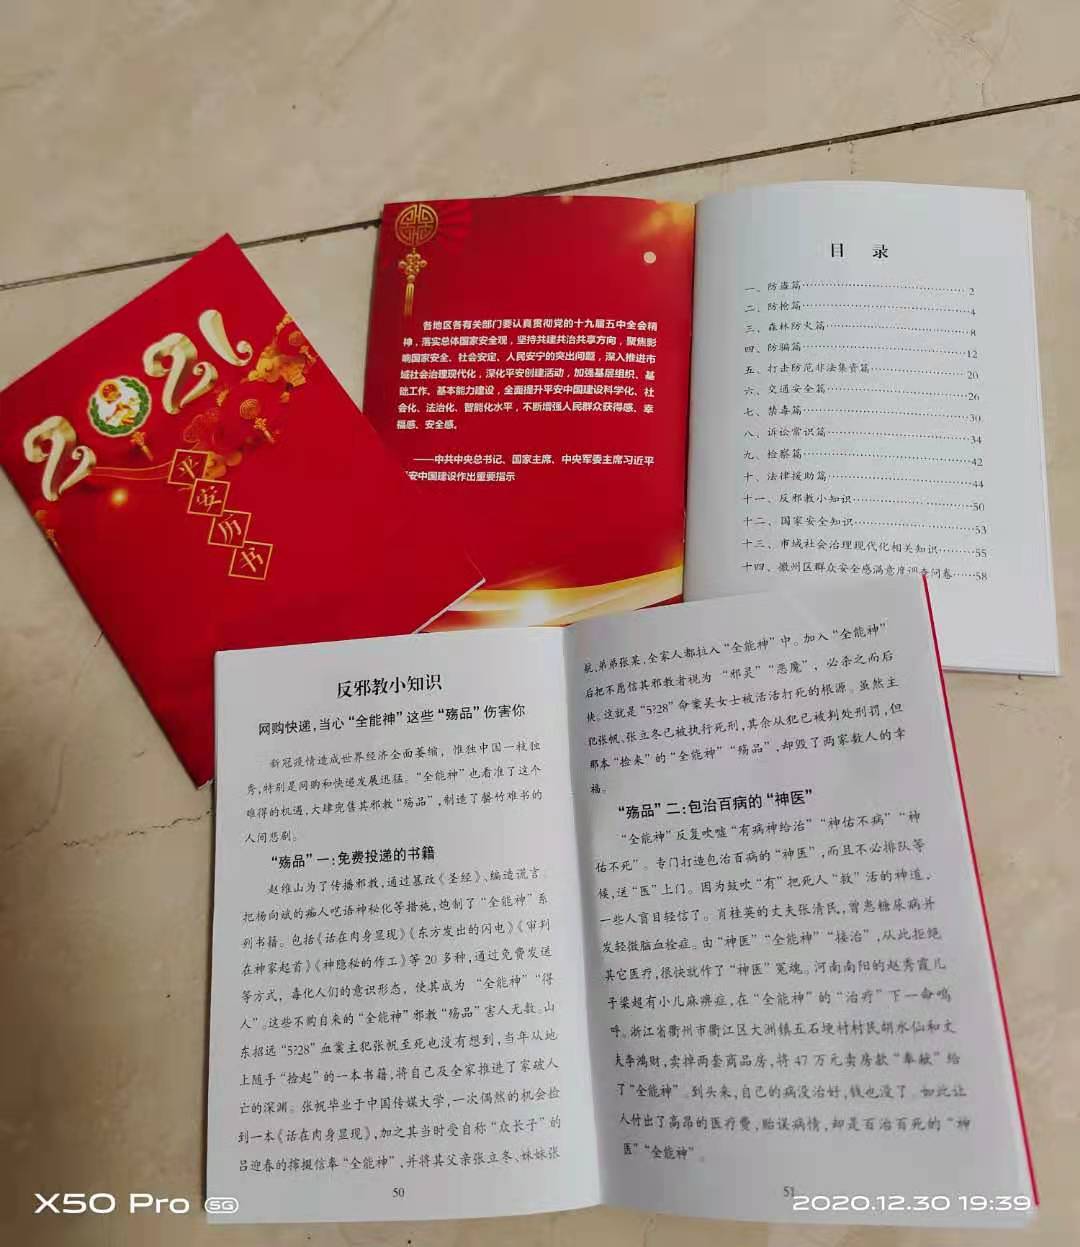 2021
平安历书
各地区各有关部门要认真贯彻党的十九届五中全会精
神，落实总体国家安全观，坚持共建共治共享方向，聚焦影
响国家安全、社会安定、人民安宁的突出问题，深入推进市
域社会治理现代化，深化平安创建活动，加强基层组织、基
础工作、基本能力建设，全面提升平安中国建设科学化、社
会化、法治化、智能化水平，不断增强人民群众获得感、幸
福感、安全感。
——中共中央总书记、国家主席、中央军委主席习近平
安中国建设作出重要指示
目 录
一、防盗篇……2
二、防抢篇……4
三、森林防火篇……8
四、防骗篇……12
五、打击防范非法集资篇……20
六、交通安全篇……26
七、禁毒篇……30
八、诉讼常识篇……34
九、检察篇……42
十、法律援助篇……44
十一、反邪教小知识……50
十二、国家安全知识……53
十三、市域社会治理现代化相关知识……55
十四、徽州区群众安全感满意度调查问卷……58
反邪教小知识
网购快递，当心“全能神”这些“殇品”伤害你
新冠疫情造成世界经济全面萎缩，惟独中国一枝独
秀，特别是网购和快递发展迅猛。“全能神”也看准了这个
难得的机遇，大肆兜售其邪教“殇品”，制造了罄竹难书的
人间悲剧。
“殇品”一：免费投递的书籍
赵维山为了传播邪教，通过篡改《圣经》、编造谎言、
把杨向斌的痴人呓语神秘化等措施，炮制了“全能神”系
列书籍。包括《话在肉身显现》《东方发出的闪电》《审判
在神家起首》《神隐秘的作工》等20多种，通过免费发送
等方式，毒化人们的意识形态，使其成为“全能神”“得
人”。这些不购自来的“全能神”邪教“殇品”害人无数。山
东招远“5?28”血案主犯张帆至死也没有想到，当年从地
上随手“捡起”的一本书籍，将自己及全家推进了家破人
亡的深渊。张帆毕业于中国传媒大学，一次偶然的机会捡
到一本《话在肉身显现》，加之其当时受自称“众长子”的
吕迎春的撺掇信奉“全能神”，并将其父亲张立冬、妹妹张
50
航、弟弟张某，全家人都拉入“全能神”中。加入“全能神”
后把不愿信其邪教者视为“邪灵”“恶魔”，必杀之而后
快。这就是“5?28”命案吴女士被活活打死的根源。虽然主
犯张帆、张立冬已被执行死刑，其余从犯已被判处刑罚，但
那本“捡来”的“全能神”“殇品”，却毁了两家数人的幸
福。
“殇品”二：包治百病的“神医”
“全能神”反复吹嘘“有病神给治”“神佑不病”“神
佑不死”。专门打造包治百病的“神医”，而且不必排队等
候，送“医”上门。因为鼓吹“有”把死人“救”活的神道，
一些人盲目轻信了。肖桂英的丈夫张清民，曾患糖尿病并
发轻微脑血栓症。由“神医”“全能神”“接治”，从此拒绝
其它医疗，很快就作了“神医”冤魂。河南南阳的赵秀霞儿
子梁超有小儿麻痹症，在“全能神”的“治疗”下一命呜
呼。浙江省衢州市衢江区大洲镇五石埂村村民胡水仙和丈
夫李鸿财，卖掉两套商品房，将47万元卖房款“奉献”给
了“全能神”。到头来，自己的病没治好，钱也没了。如此让
人付出了高昂的医疗费，贻误病情，却是百治百死的“神
医”“全能神”。
51
X50 Pro 5G
2020.12.30 19:39